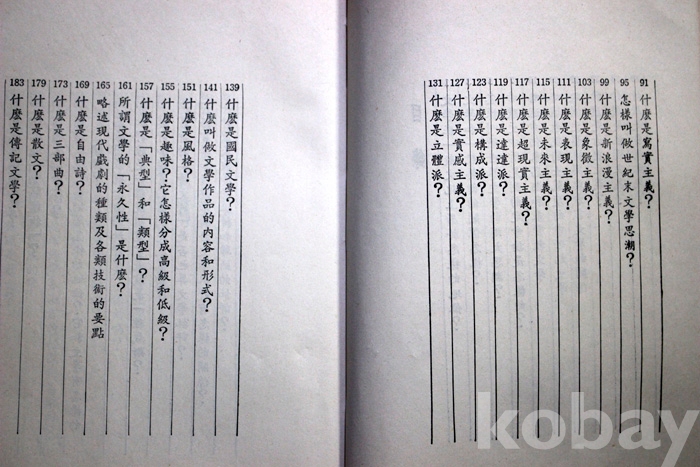 91 什麼是寫實主義?
95 怎樣叫做世紀末文學思潮?
99 什麼是新浪漫主義?
103 什麼是象徵主義?
111 什麼是表現主義?
115 什麼是未來主義?
117 什麼是超現實主義?
119 什麼是達達派?
123 什麼是構成派?
127 什麼是實感主義?
131 什麼是立體派?
139 什麼是國民文學?
141 什麼叫做文學作品的內容和形式?
151 什麼是風格?
155 什麼是趣味?它怎樣分成高級和低級?
157 什麼是「典型」和「類型」?
161 所謂文學的「永久性」是什麼?
165 略述現代戲劇的種類及各類技術的要點
169 什麼是自由詩?
173 什麼是三部曲?
179 什麼是散文?
183 什麼是傳記文學?
kobay